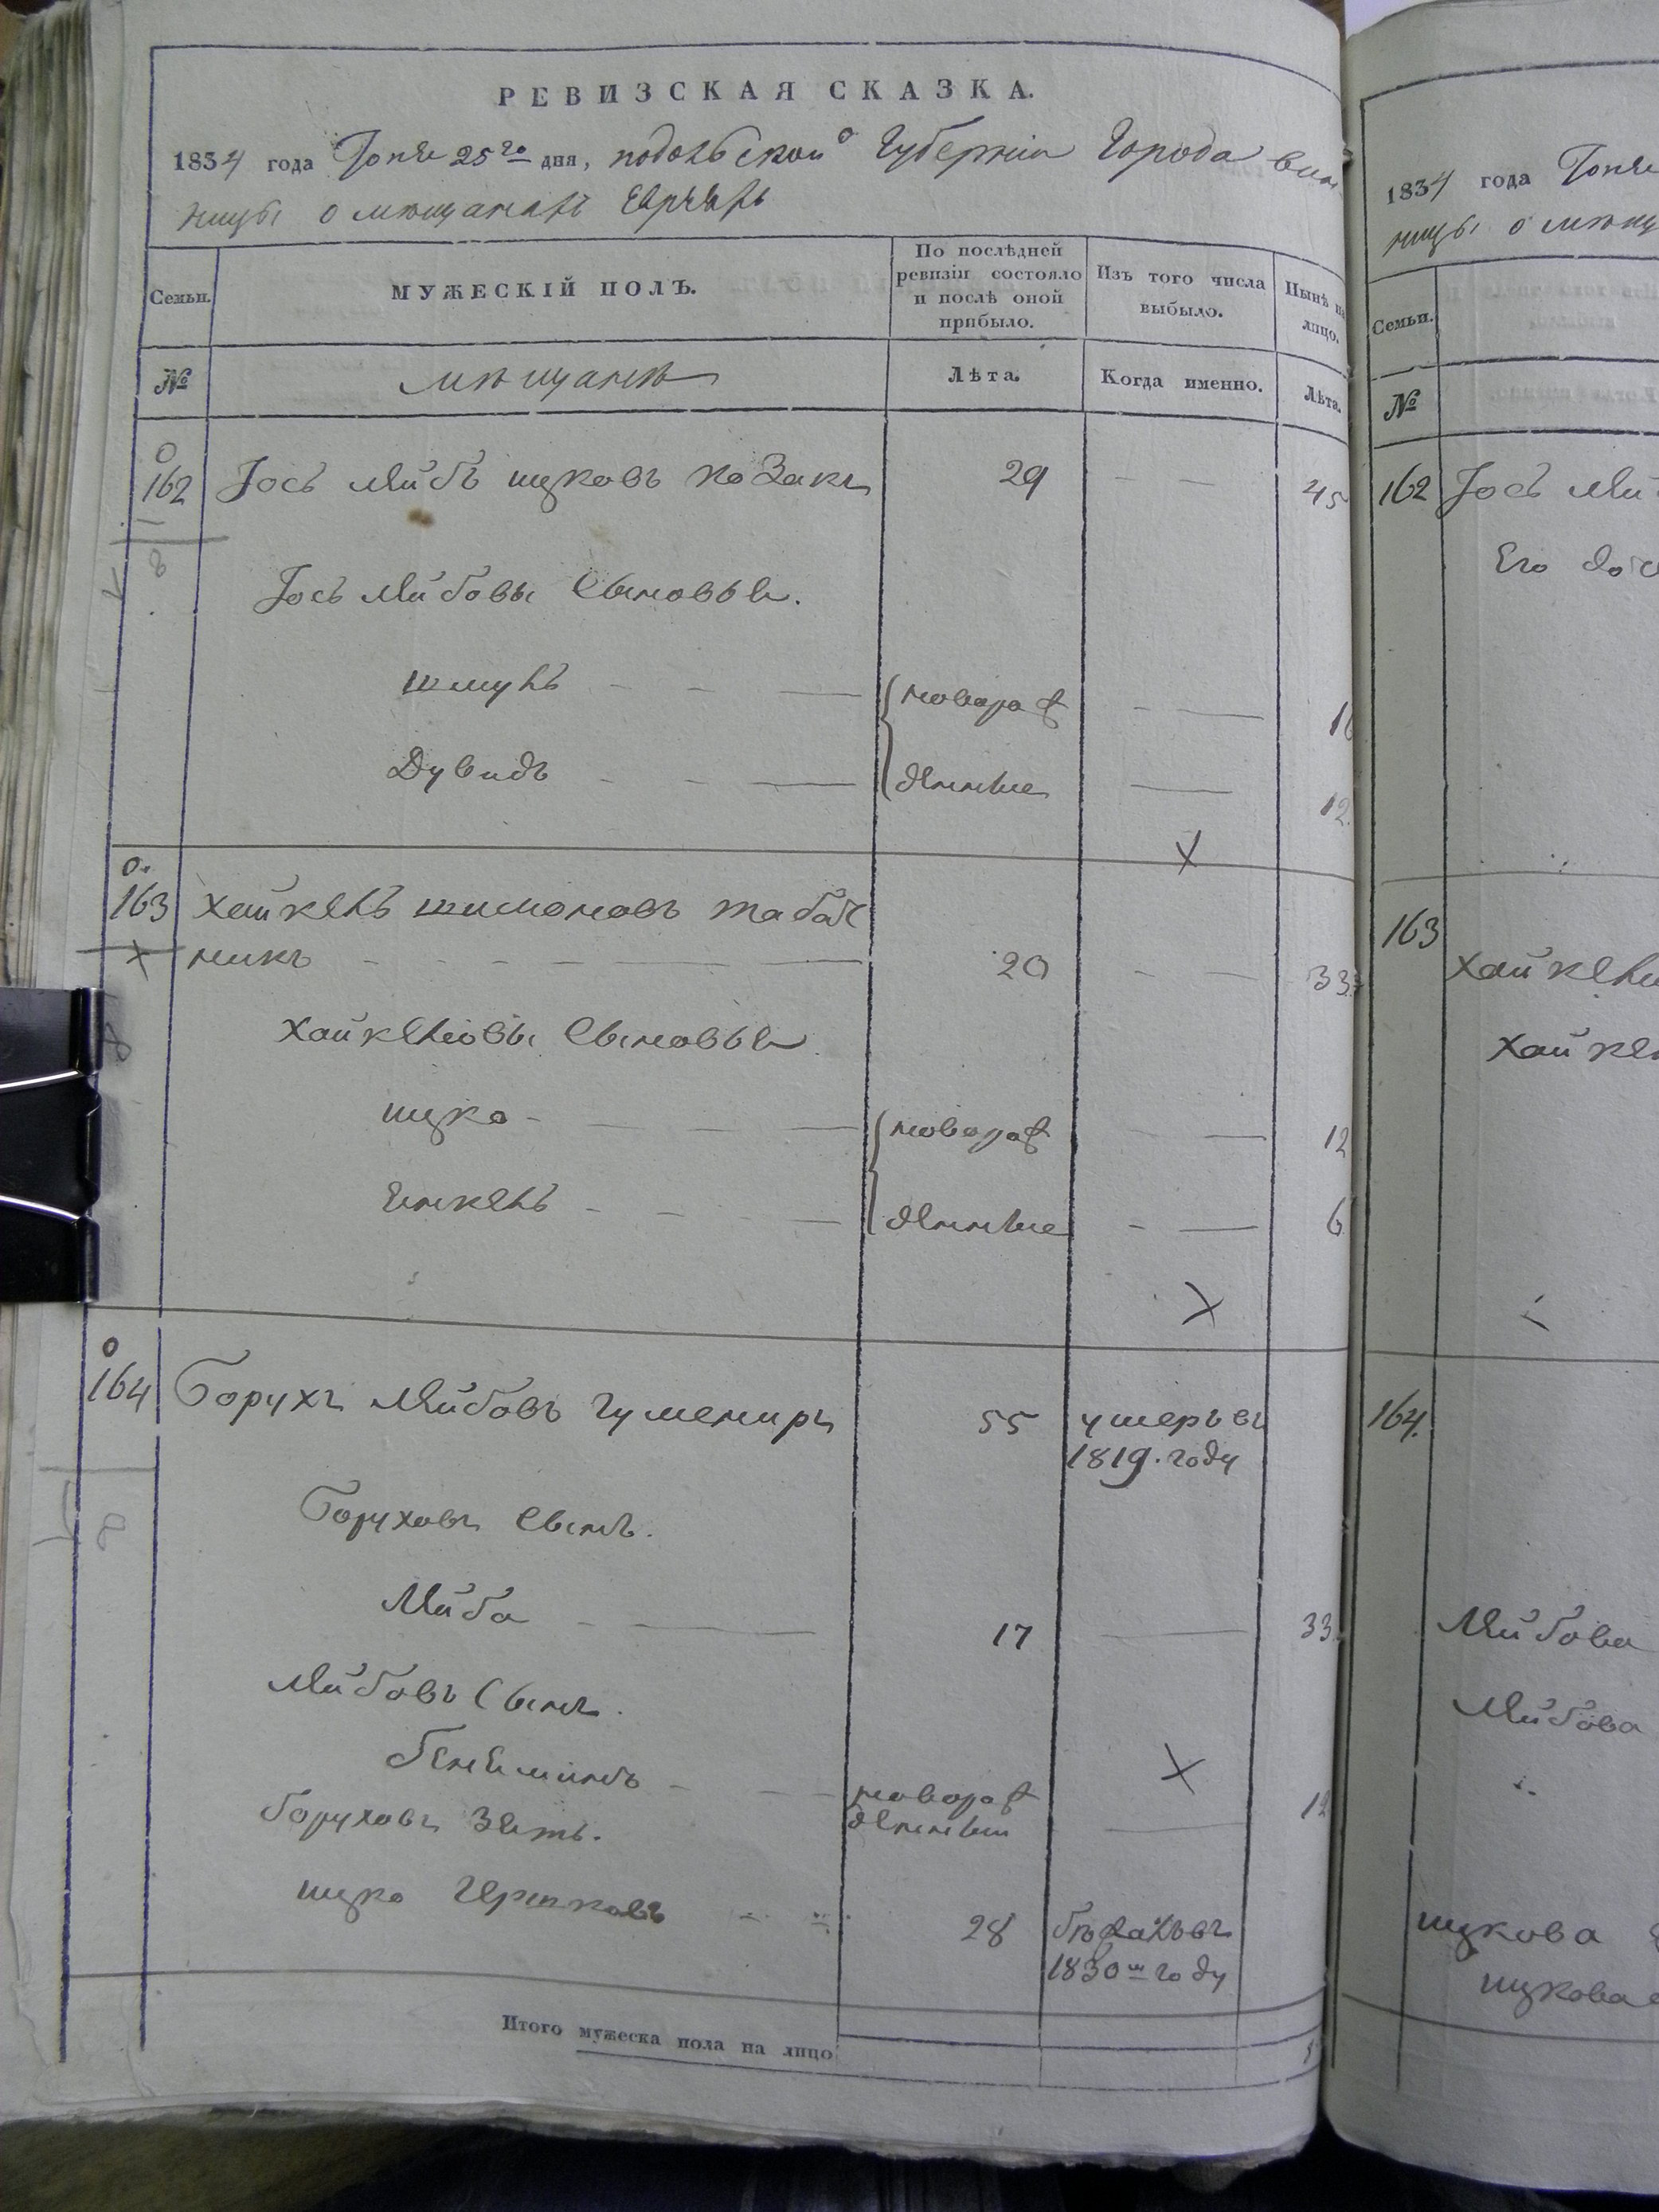 РЕВИЗСКАЯ СКАЗКА.
1834 года Іюня 25го дня, подольской Губерніи Города вин
ницы о мѣщанахъ Евреяхъ
Семьи.
МУЖЕСКІЙ ПОЛЪ.
По послѣдней ревизіи состояло и послѣ оной прибыло.
Изъ того числа выбыло.
Нынѣ на лицо.
№
мѣщане
Лѣта.
Когда именно.
Лѣта.
162 Іось Лейбъ ицковъ Козакъ 29 45
Іось Лейбовы Сыновья.
шмуль новорож
Дувидъ денные 12.
163 Хайкель шимоновъ табач
никъ 20 33.
Хайкелювы Сыновья
ицко новорож 12
Еинкель денные 6
164 Борухъ Лейбовъ Гумениръ 55 умеръ въ
1819. году
Боруховъ Сынъ.
Лейба 17 33.
Лейбовъ Сынъ.
Бенеминъ новорож
денный
Боруховъ Зять.
ицко Гершковъ 28 бѣжалъ въ
1830м году
Итого мужеска пола на лицо
1834 года Іюня
ницы о мѣщ
Семьи.
№
162 Іось Лей
Его
163
Хайкелю
Хайкел
164.
Лейбова
Лейбова
ицкова
ицкова